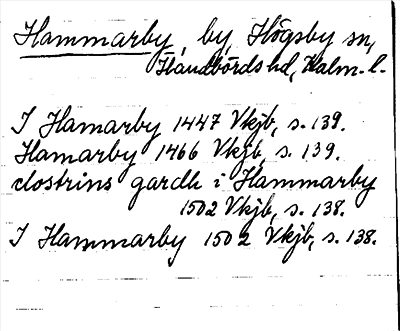 Hammarby, by, Högsby sn,
Handbörds hd, Kalm. l.
I Hamarby 1447 Vkjb, s. 139.
Hamarby 1466 Vkjb, s. 139.
clostrins gardh i Hammarby
1502 Vkjb, s. 138.
I Hammarby 1502 Vkjb, s. 138.